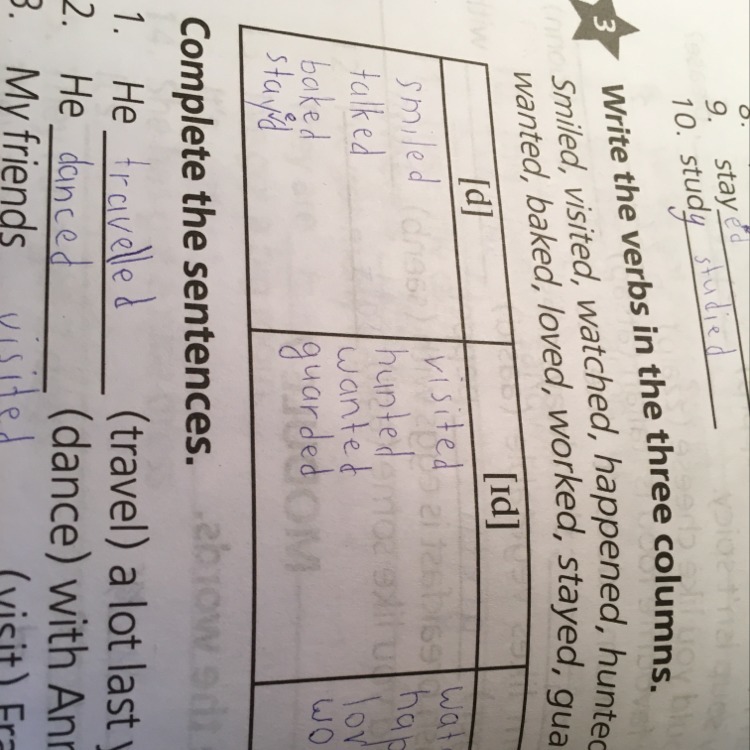 8.
9. stayed
10. study studied
3 Write the verbs in the three columns.
Smiled, visited, watched, happened, hunted
wanted, baked, loved, worked, stayed, gua
[d] [ɪd]
smiled visited wat
talked hunted hap
baked wanted lov
stayed guarded wo
Complete the sentences.
1. He travelled (travel) a lot last y
2. He danced (dance) with Ann
3. My friends visited (visit) Fra